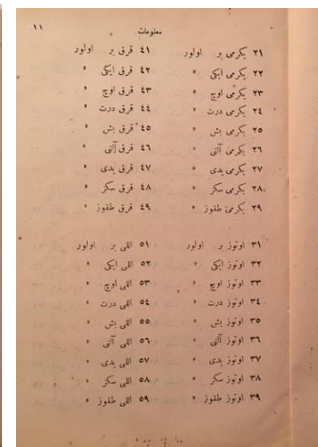 معلومات ١١
٢١ يكرمى بر اولور
٢٢ يكرمى ايكى »
٢٣ يكرمى اوچ »
٢٤ يكرمى درت »
٢٥ يكرمى بش »
٢٦ يكرمى آلتى »
٢٧ يكرمى يدى »
٢٨ يكرمى سكز »
٢٩ يكرمى طقوز »
٣١ اوتوز بر اولور
٣٢ اوتوز ايكى »
٣٣ اوتوز اوچ »
٣٤ اوتوز درت »
٣٥ اوتوز بش »
٣٦ اوتوز آلتى »
٣٧ اوتوز يدى »
٣٨ اوتوز سكز »
٣٩ اوتوز طقوز »
٤١ قرق بر اولور
٤٢ قرق ايكى »
٤٣ قرق اوچ »
٤٤ قرق درت »
٤٥ قرق بش »
٤٦ قرق آلتى »
٤٧ قرق يدى »
٤٨ قرق سكز »
٤٩ قرق طقوز »
٥١ اللى بر اولور
٥٢ اللى ايكى »
٥٣ اللى اوچ »
٥٤ اللى درت »
٥٥ اللى بش »
٥٦ اللى آلتى »
٥٧ اللى يدى »
٥٨ اللى سكز »
٥٩ اللى طقوز »